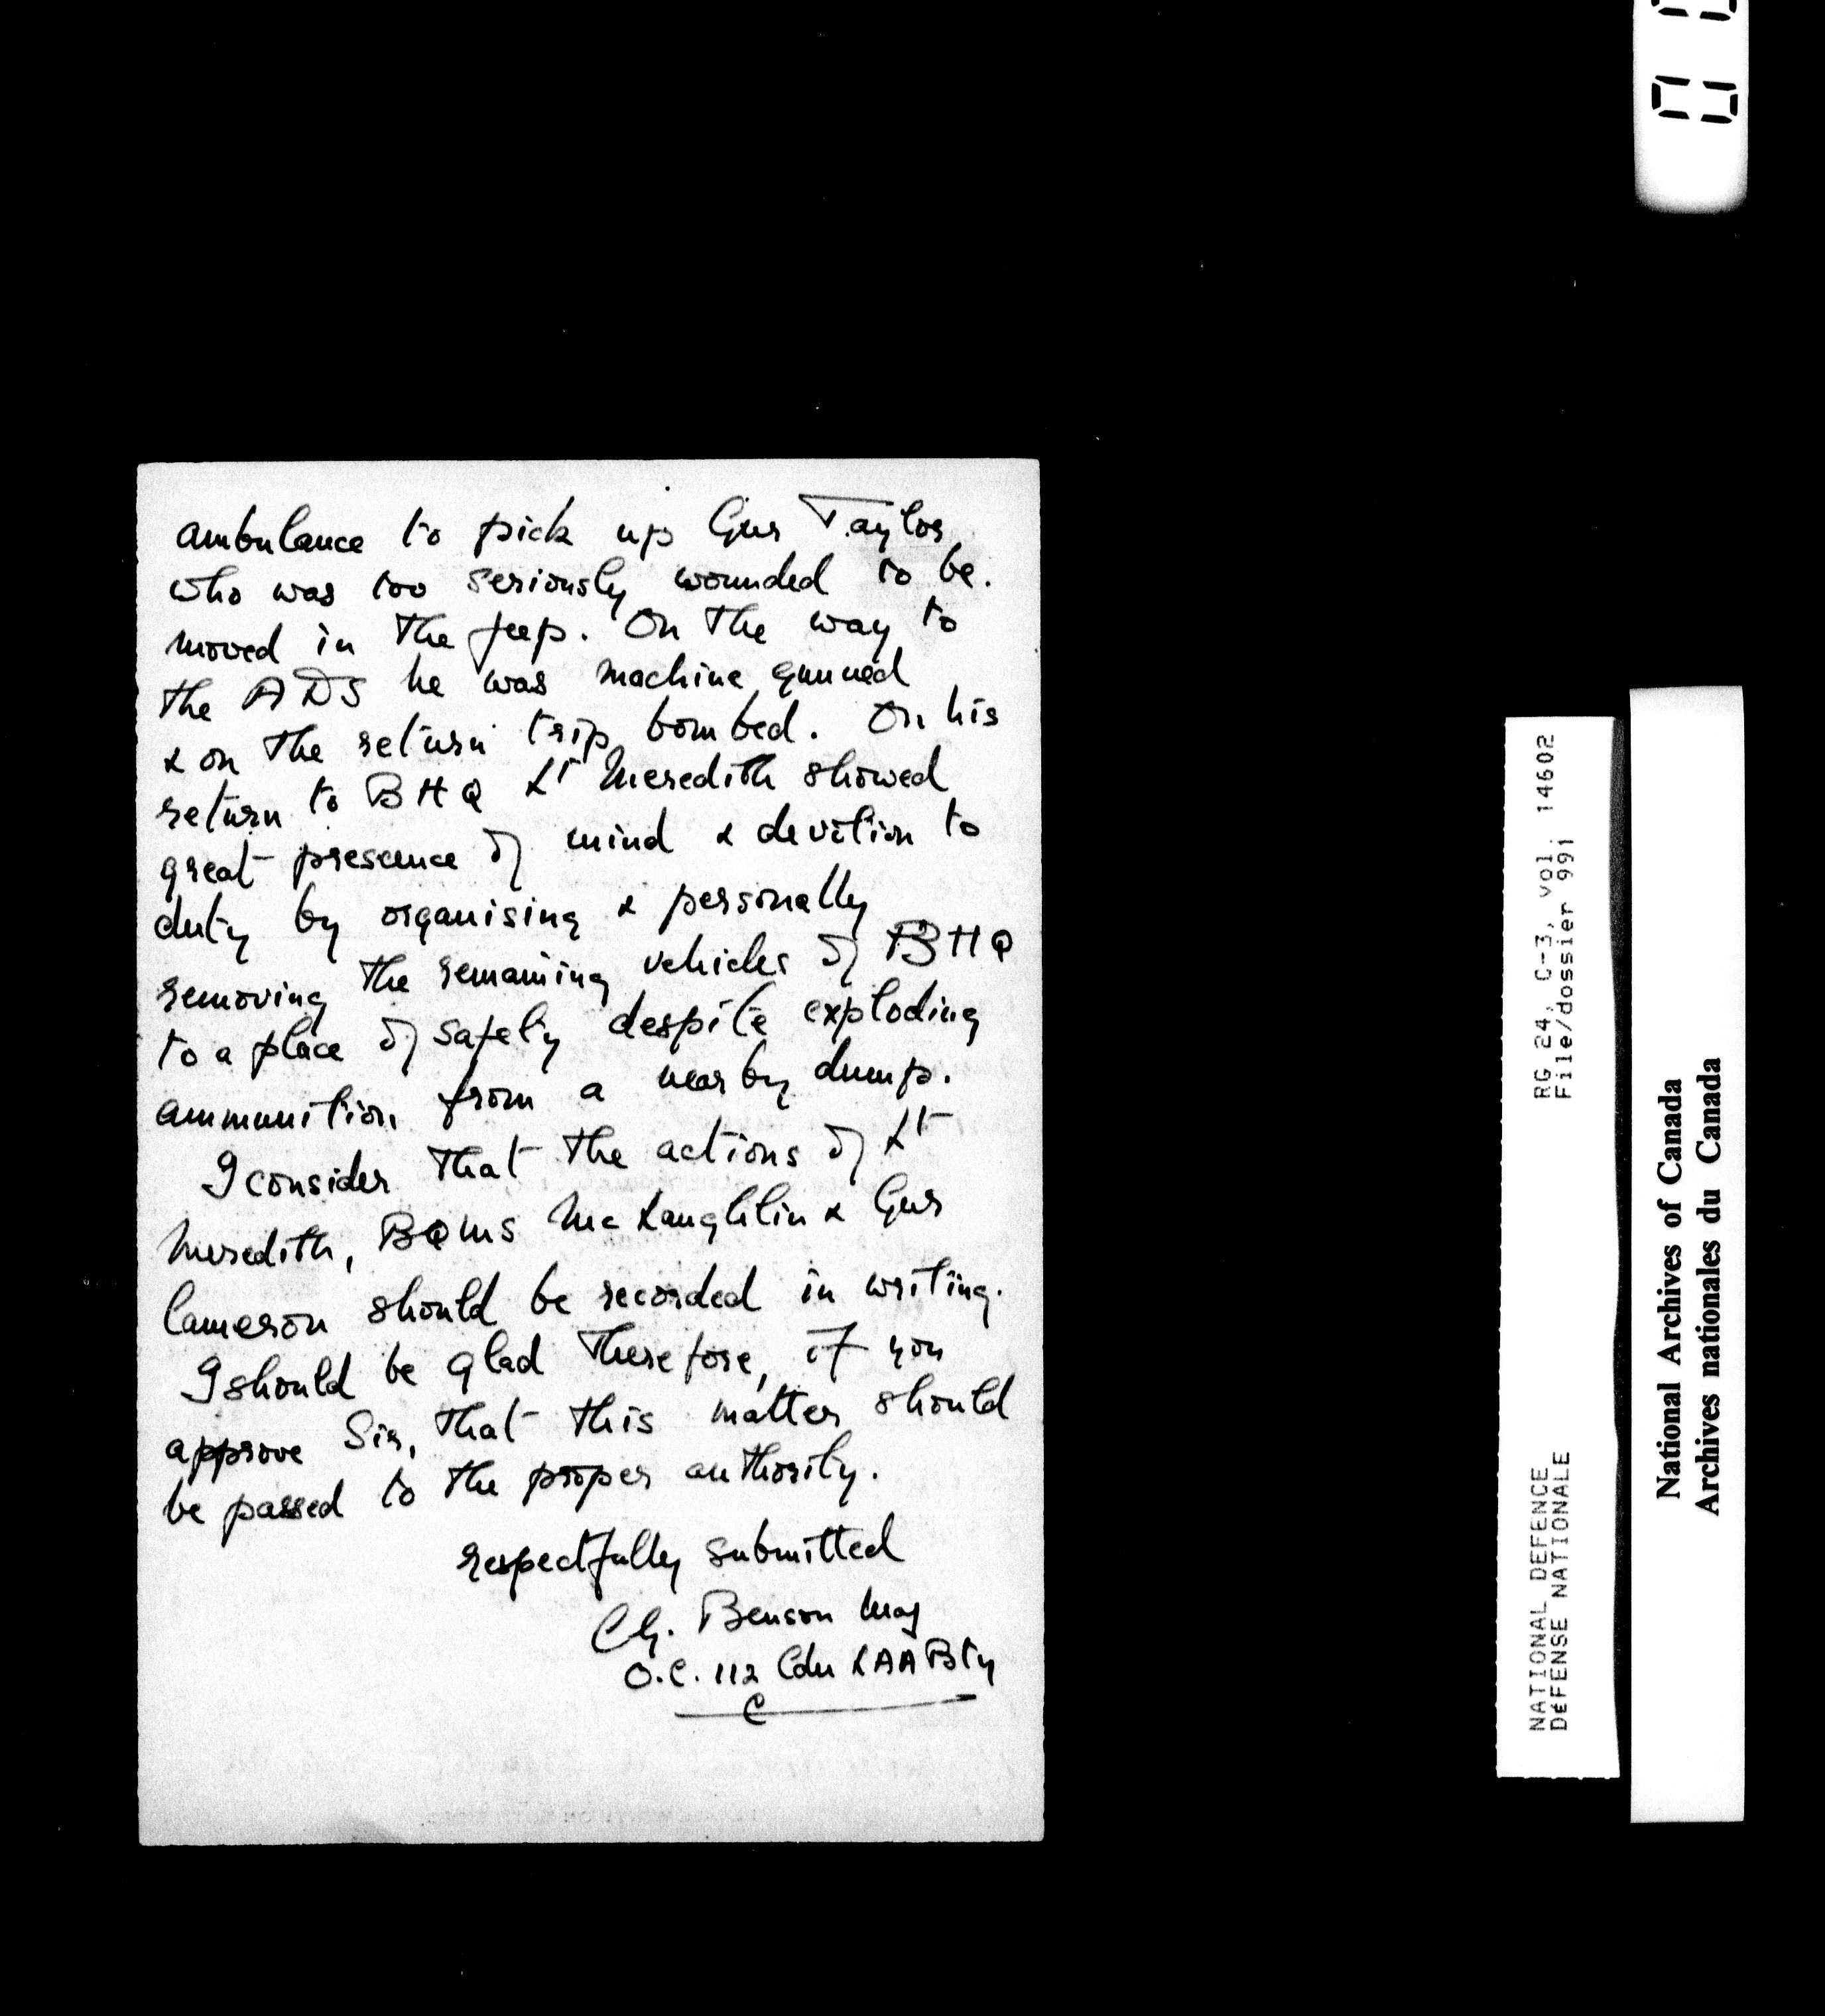 ambulance to pick up Gnr Taylor
who was too seriously wounded to be.
moved in the jeep. On the way to
the ADS he was machine gunned
& on the return trip bombed. On his
return to BHQ Lt Meredith showed
great presence of mind & devotion to
duty by organising & personally
removing the remaining vehicles of BHQ
to a place of safety despite exploding
ammunition from a near by dump.
I consider that the actions of Lt
Meredith, BQMS McLaughlin & Gnr
Cameron should be recorded in writing.
I should be glad therefore, if you
approve Sir, that this matter should
be passed to the proper authority.
respectfully submitted
CG. Benson Maj
O.C. 112 Cdn LAA Bty
C
NATIONAL DEFENCE RG 24, C-3, vol. 14602
DéFENSE NATIONALE File/dossier 991
National Archives of Canada
Archives nationales du Canada